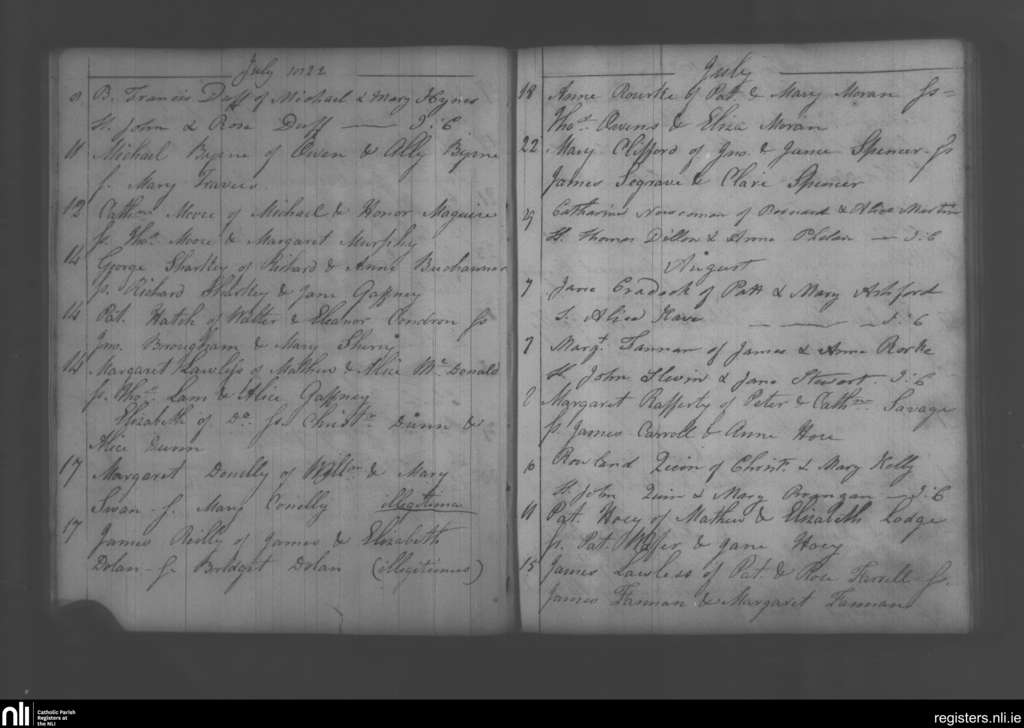 July 1822
9 B. Francis Duff of Michael & Mary Hynes
St. John & Rose Duff — J:C
11 Michael Byrne of Owen & Ally Byrne
s. Mary Travers
12 Cathne Moore of Michael & Honor Maguire
ss. Thos. Moore & Margaret Murphy
14 George Sharkey of Richard & Anne
ss. Richard Sharkey & Jane Gaffney
14 Pat. Hatch of Walter & Eleanor Condron ss
Jno. Brougham & Mary Sherry
14 Margaret Lawless of Mathew & Alice McDonald
ss. Thos. Lam & Alice Gaffney
Elizabeth of Do. ss. Christr. Dunn &
Alice Dunn
17 Margaret Donelly of Willm & Mary
Swan - s. Mary Conolly illegitima
17 James Reilly of James & Elizabeth
Dolan - s. Bridget Dolan (illegitimus)
July
18 Anne Rourke of Pat & Mary Moran ss=
Thos. Owens & Eliza Moran
22 Mary Clifford of Jno. & Jane Spencer - ss
James Segrave & Clare Spencer
29 Catharine Newcomen of Bernard & Alice Martin
St. Thomas Dillon & Anne Phelan — J:C
August
7 Jane Cradock of Patt & Mary Ashford
S. Alice Kave — J:C
7 Margt. Fannan of James & Anne Rorke
St. John Slevin & Jane Stewart. J:C
8 Margaret Rafferty of Peter & Cathne Savage
ss. James Carroll & Anne Hore
6 Rowland Quinn of Christr. & Mary Kelly
St. John Quin & Mary Brangan — J:C
11 Pat. Hoey of Mathew & Elizabeth Lodge
ss. Pat. & Jane Hoey
15 James Lawless of Pat. & Rose Farrell - ss.
James Fannan & Margaret Fannan
nli
Catholic Parish
Registers at
the NLI
registers.nli.ie